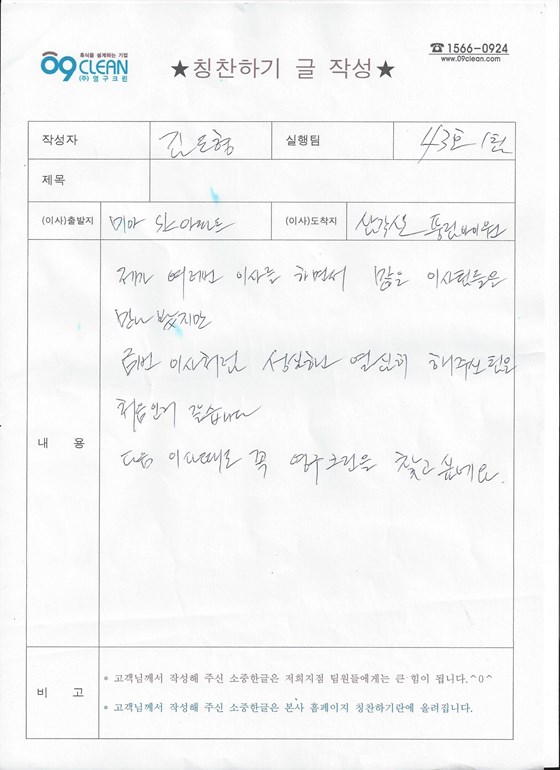 휴식을 설계하는 기업
09 CLEAN
(주)영구크린
★칭찬하기 글 작성★
☎ 1566-0924
www.09clean.com
작성자 김도형 실행팀 43호 1팀
제목
(이사)출발지 미아 SK아파트 (이사)도착지 삼각산 풍림아이원
내 용
제가 여러번 이사를 하면서 많은 이사팀들은
만나 봤지만
금번 이사처럼 성실하고 열심히 해주는 팀은
처음인거 같습니다
다음 이사때도 꼭 영구크린을 찾고 싶네요.
비 고
* 고객님께서 작성해 주신 소중한글은 저희지점 팀원들에게는 큰 힘이 됩니다.^0^
* 고객님께서 작성해 주신 소중한글은 본사 홈페이지 칭찬하기란에 올려집니다.